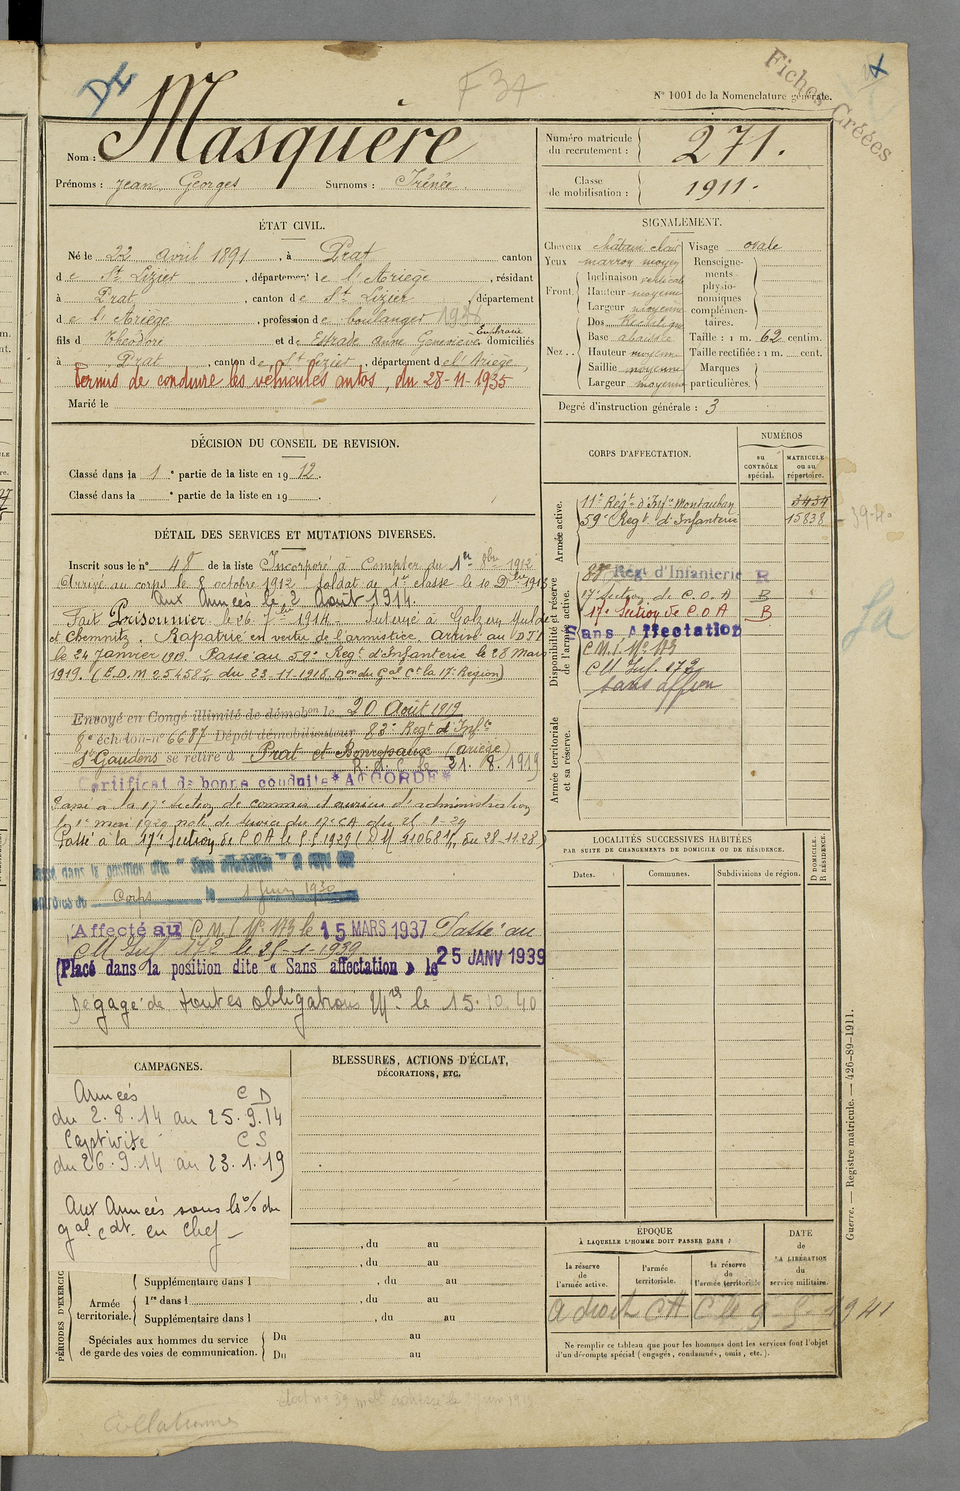 D4
F 34
Fiches Créées
N° 1001 de la Nomenclature générale.
Nom : Masquère
Prénoms : Jean Georges Surnoms : Irénée
Numéro matricule du recrutement : 271.
Classe de mobilisation : 1911.
ÉTAT CIVIL.
Né le 22 avril 1891, à Prat canton
de St Lizier, département de l'Ariège, résidant
à Prat, canton de St Lizier, département
de l'Ariège, profession de boulanger
fils de Théodore et de Estrade Anne Geneviève Euphrasie domiciliés
à Prat, canton de St Lizier, département de l'Ariège,
Permis de conduire les véhicules autos, du 28-11-1935
Marié le
SIGNALEMENT.
Cheveux châtain clair Visage ovale
Yeux marron moyen
Front. Inclinaison verticale
Hauteur moyenne
Largeur moyenne
Nez.. Dos Rectiligne
Base abaissée
Hauteur moyenne
Saillie moyenne
Largeur moyenne
Renseignements physionomiques complémentaires.
Taille : 1 m. 62 centim.
Taille rectifiée : 1 m. cent.
Marques particulières.
Degré d'instruction générale : 3
DÉCISION DU CONSEIL DE REVISION.
Classé dans la 1e partie de la liste en 1912.
Classé dans la e partie de la liste en 19 .
DÉTAIL DES SERVICES ET MUTATIONS DIVERSES.
Inscrit sous le n° 48 de la liste Incorporé à Compter du 1er 8bre 1912
Arrivé au corps le 8 octobre 1912 soldat de 1re classe le 10 Dbre 1913
Aux Armées le 2 Août 1914.
Fait Prisonnier le 26 7bre 1914. Interné à Golzern
et Chemnitz. Rapatrié en vertu de l'armistice, arrivé au D.T.I.
le 24 janvier 1919. Passé au 59e Regt d'Infanterie le 28 Mars
1919. (E.D.M 25458 du 23-11-1918 Don du Gal Ct la 17e Région)
Envoyé en Congé illimité de démobon le 20 Août 1919
8e échelon n° 6687 Dépôt démobilisateur 83e Regt d'Infie
St Gaudens se retire à Prat et Bonrepaux (Ariège)
R.D.C. le 31.8.1919
Certificat de bonne conduite *ACCORDÉ*
Passé à la 17e section de commis et ouvriers d'administration
le 1er mai 1929
Passé à la 17e Section de C.O.A le
Passé dans la position dite "Sans affectation"
Corps le 1 juin 1930
Affecté au C.M.I. N° 173 le 15 MARS 1937 Passé au
CM Inf 172 le 25-1-1939
(Placé dans la position dite « Sans affectation » le 25 JANV 1939
Dégagé de toutes obligations Mres le 15.10.40
CORPS D'AFFECTATION.
NUMÉROS
au CONTRÔLE spécial.
MATRICULE ou au répertoire.
Armée active.
11e Régt d'Infie Montauban 3434
59e Regt d'Infanterie 15838
Disponibilité et réserve de l'armée active.
83e Regt d'Infanterie R
17e Section de C.O.A B
17e Section de C.O.A B
Sans Affectation
C.M.I. N° 173
CM Inf. 172
sans affon
Armée territoriale et sa réserve.
LOCALITÉS SUCCESSIVES HABITÉES
PAR SUITE DE CHANGEMENTS DE DOMICILE OU DE RÉSIDENCE.
Dates. Communes. Subdivisions de région. D DOMICILE. R RÉSIDENCE.
CAMPAGNES.
Armées C D
du 2.8.14 au 25.9.14
Captivité C S
du 26.9.14 au 23.1.19
Aux Armées sous
gal cdt en chef
BLESSURES, ACTIONS D'ÉCLAT,
DÉCORATIONS, ETC.
, du au
, du au
PÉRIODES D'EXERCICES
Supplémentaire dans l , du au
Armée territoriale. 1re dans l , du au
Supplémentaire dans l , du au
Spéciales aux hommes du service de garde des voies de communication. Du au
Du au
ÉPOQUE
À LAQUELLE L'HOMME DOIT PASSER DANS :
la réserve de l'armée active. l'armée territoriale. la réserve de l'armée territoriale
DATE de LA LIBÉRATION du service militaire.
Ne remplir ce tableau que pour les hommes dont les services font l'objet
d'un décompte spécial (engagés, condamnés, omis, etc.).
Guerre. — Registre matricule. — 426-89-1911.
Collationné